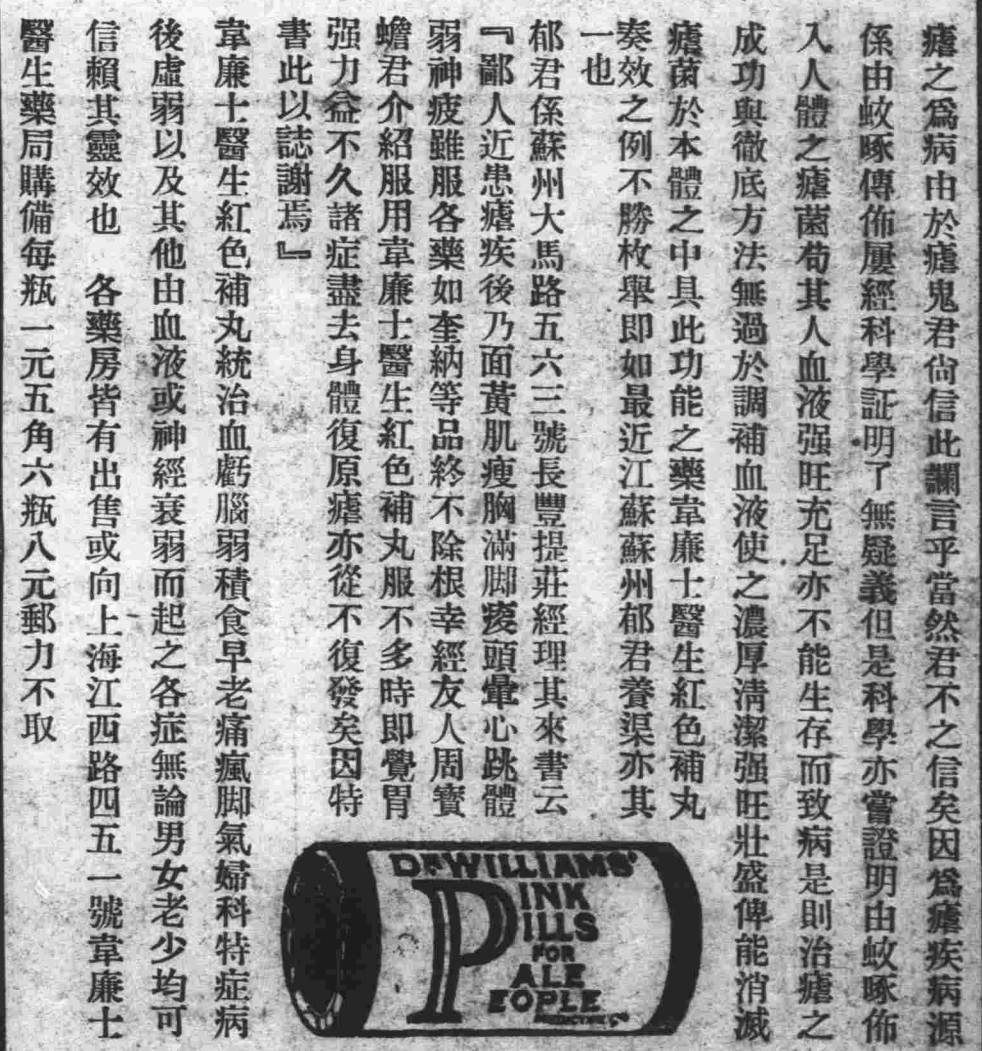 瘧之爲病由於瘧鬼君尙信此讕言乎當然君不之信矣因爲瘧疾病源
係由蚊啄傳佈屢經科學証明了無疑義但是科學亦嘗證明由蚊啄佈
入人體之瘧菌苟其人血液强旺充足亦不能生存而致病是則治瘧之
成功與徹底方法無過於調補血液使之濃厚淸潔强旺壯盛俾能消滅
瘧菌於本體之中具此功能之藥韋廉士醫生紅色補丸
奏效之例不勝枚舉即如最近江蘇蘇州郁君養渠亦其
一也
郁君係蘇州大馬路五六三號長豐提莊經理其來書云
『鄙人近患瘧疾後乃面黃肌瘦胸滿脚痠頭暈心跳體
弱神疲雖服各藥如奎納等品終不除根幸經友人周寶
蟾君介紹服用韋廉士醫生紅色補丸服不多時即覺胃
强力益不久諸症盡去身體復原瘧亦從不復發矣因特
書此以誌謝焉』
韋廉士醫生紅色補丸統治血虧腦弱積食早老痛瘋脚氣婦科特症病
後虛弱以及其他由血液或神經衰弱而起之各症無論男女老少均可
信賴其靈效也 各藥房皆有出售或向上海江西路四五一號韋廉士
醫生藥局購備每瓶一元五角六瓶八元郵力不取
DR. WILLIAMS'
PINK
PILLS
FOR
PALE
PEOPLE